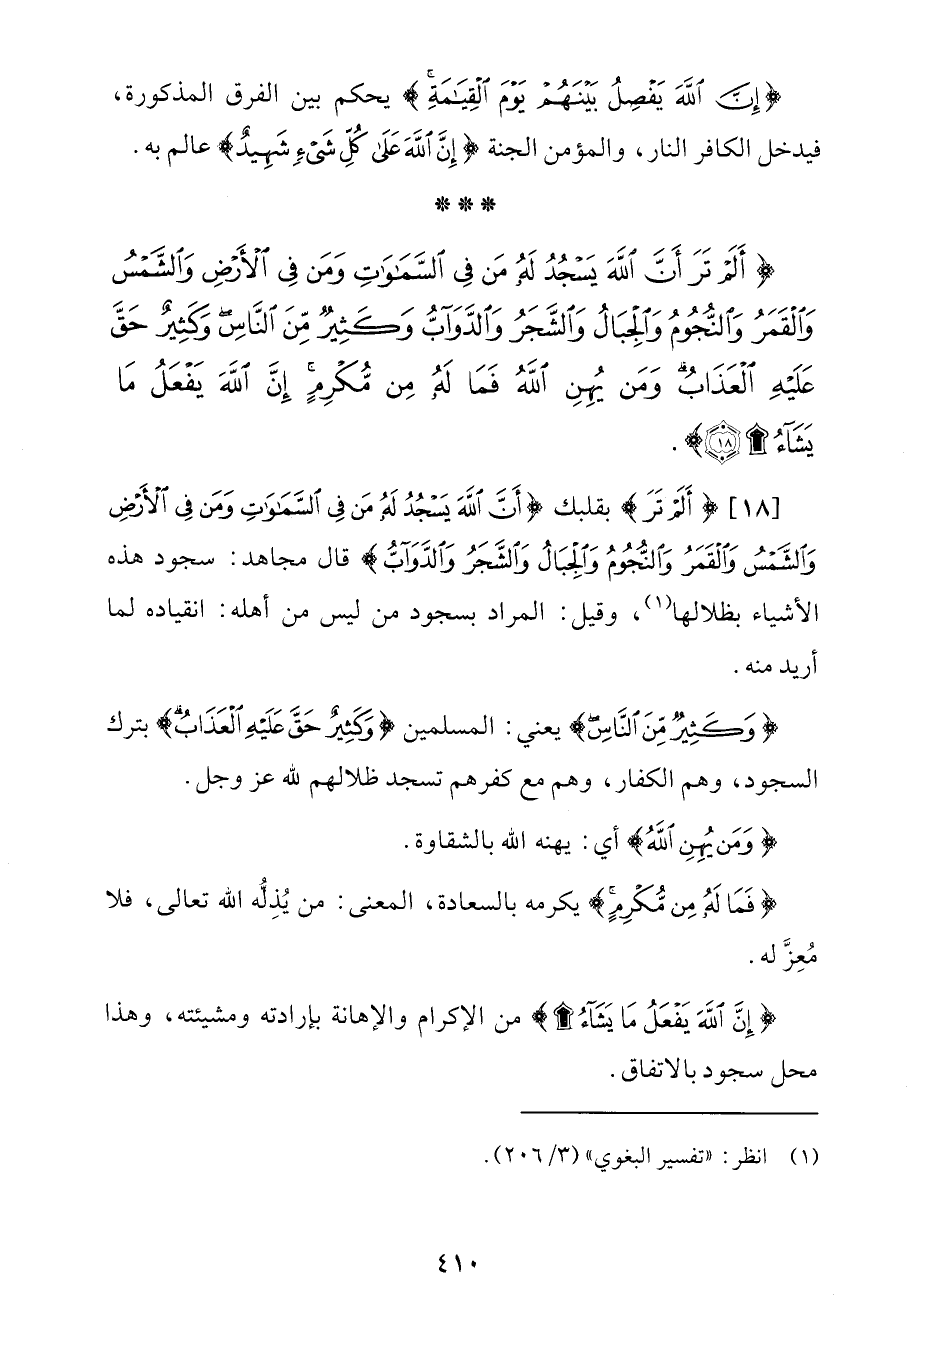 ﴿إِنَّ ٱللَّهَ يَفْصِلُ بَيْنَهُمْ يَوْمَ ٱلْقِيَٰمَةِۚ﴾ يحكم بين الفرق المذكورة،
فيدخل الكافر النار، والمؤمن الجنة ﴿إِنَّ ٱللَّهَ عَلَىٰ كُلِّ شَىْءٍ شَهِيدٌ﴾ عالم به.
* * *
﴿أَلَمْ تَرَ أَنَّ ٱللَّهَ يَسْجُدُ لَهُۥ مَن فِى ٱلسَّمَٰوَٰتِ وَمَن فِى ٱلْأَرْضِ وَٱلشَّمْسُ
وَٱلْقَمَرُ وَٱلنُّجُومُ وَٱلْجِبَالُ وَٱلشَّجَرُ وَٱلدَّوَآبُّ وَكَثِيرٌ مِّنَ ٱلنَّاسِۖ وَكَثِيرٌ حَقَّ
عَلَيْهِ ٱلْعَذَابُۗ وَمَن يُهِنِ ٱللَّهُ فَمَا لَهُۥ مِن مُّكْرِمٍۚ إِنَّ ٱللَّهَ يَفْعَلُ مَا
يَشَآءُ ۩ ١٨﴾.
[١٨] ﴿أَلَمْ تَرَ﴾ بقلبك ﴿أَنَّ ٱللَّهَ يَسْجُدُ لَهُۥ مَن فِى ٱلسَّمَٰوَٰتِ وَمَن فِى ٱلْأَرْضِ
وَٱلشَّمْسُ وَٱلْقَمَرُ وَٱلنُّجُومُ وَٱلْجِبَالُ وَٱلشَّجَرُ وَٱلدَّوَآبُّ﴾ قال مجاهد: سجود هذه
الأشياء بظلالها(١)، وقيل: المراد بسجود من ليس من أهله: انقياده لما
أريد منه.
﴿وَكَثِيرٌ مِّنَ ٱلنَّاسِۖ﴾ يعني: المسلمين ﴿وَكَثِيرٌ حَقَّ عَلَيْهِ ٱلْعَذَابُۗ﴾ بترك
السجود، وهم الكفار، وهم مع كفرهم تسجد ظلالهم لله عز وجل.
﴿وَمَن يُهِنِ ٱللَّهُ﴾ أي: يهنه الله بالشقاوة.
﴿فَمَا لَهُۥ مِن مُّكْرِمٍۚ﴾ يكرمه بالسعادة، المعنى: من يُذِلُّه الله تعالى، فلا
مُعِزَّ له.
﴿إِنَّ ٱللَّهَ يَفْعَلُ مَا يَشَآءُ ۩﴾ من الإكرام والإهانة بإرادته ومشيئته، وهذا
محل سجود بالاتفاق.
(١) انظر: «تفسير البغوي» (٣/ ٢٠٦).
٤١٠